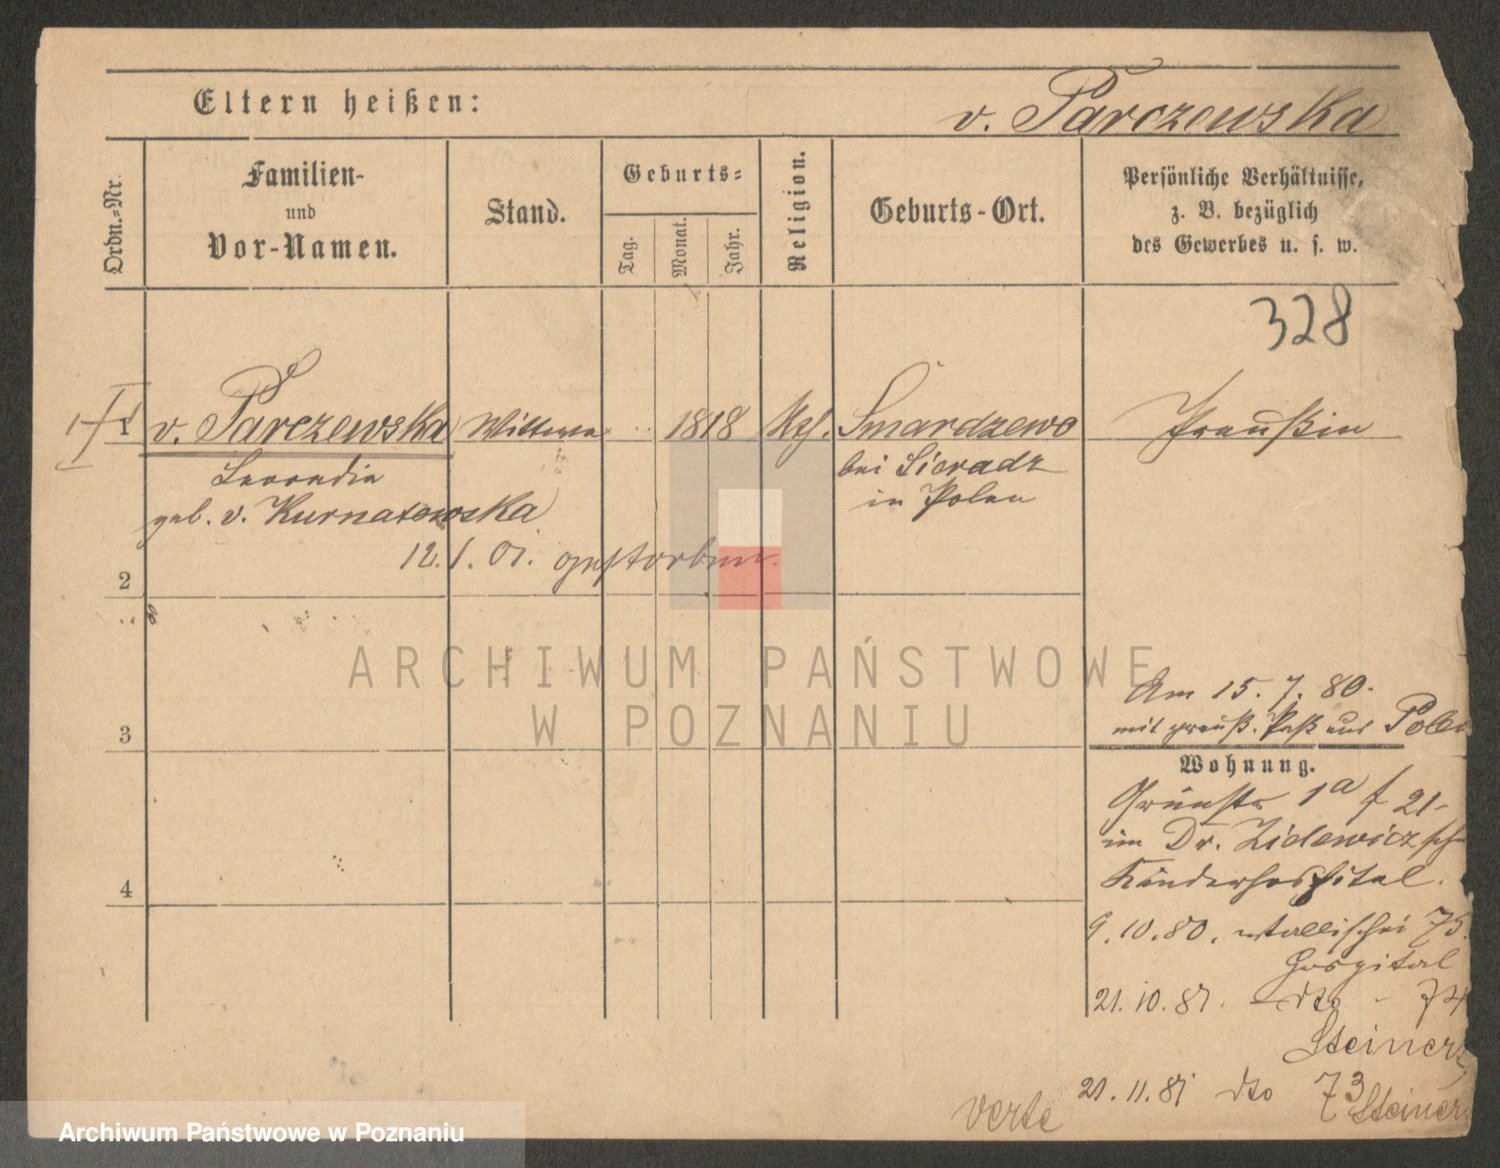 Eltern heißen:
v. Parczewska
Ordn.-Nr.
Familien-
und
Vor-Namen.
Stand.
Geburts-
Tag.
Monat.
Jahr.
Religion.
Geburts-Ort.
Persönliche Verhältnisse,
z. B. bezüglich
des Gewerbes u. s. w.
328
1 v. Parczewska Wittwe 1818 Kth. Smardzewo Preußin
bei Sieradz
geb. v. Kurnatowska in Polen
12.1.01. gestorben.
2
3
4
Am 15. 7. 80.
mit preuß. Paß aus Polen
Wohnung.
Grünstr 1a f 21
im Dr.
Kinderhospital.
9.10.80. 75
Hospital
21.10.81. - dto - 74
Steinert
21.11.81 dto 73 Steinert
verte
ARCHIWUM PAŃSTWOWE
W POZNANIU
Archiwum Państwowe w Poznaniu